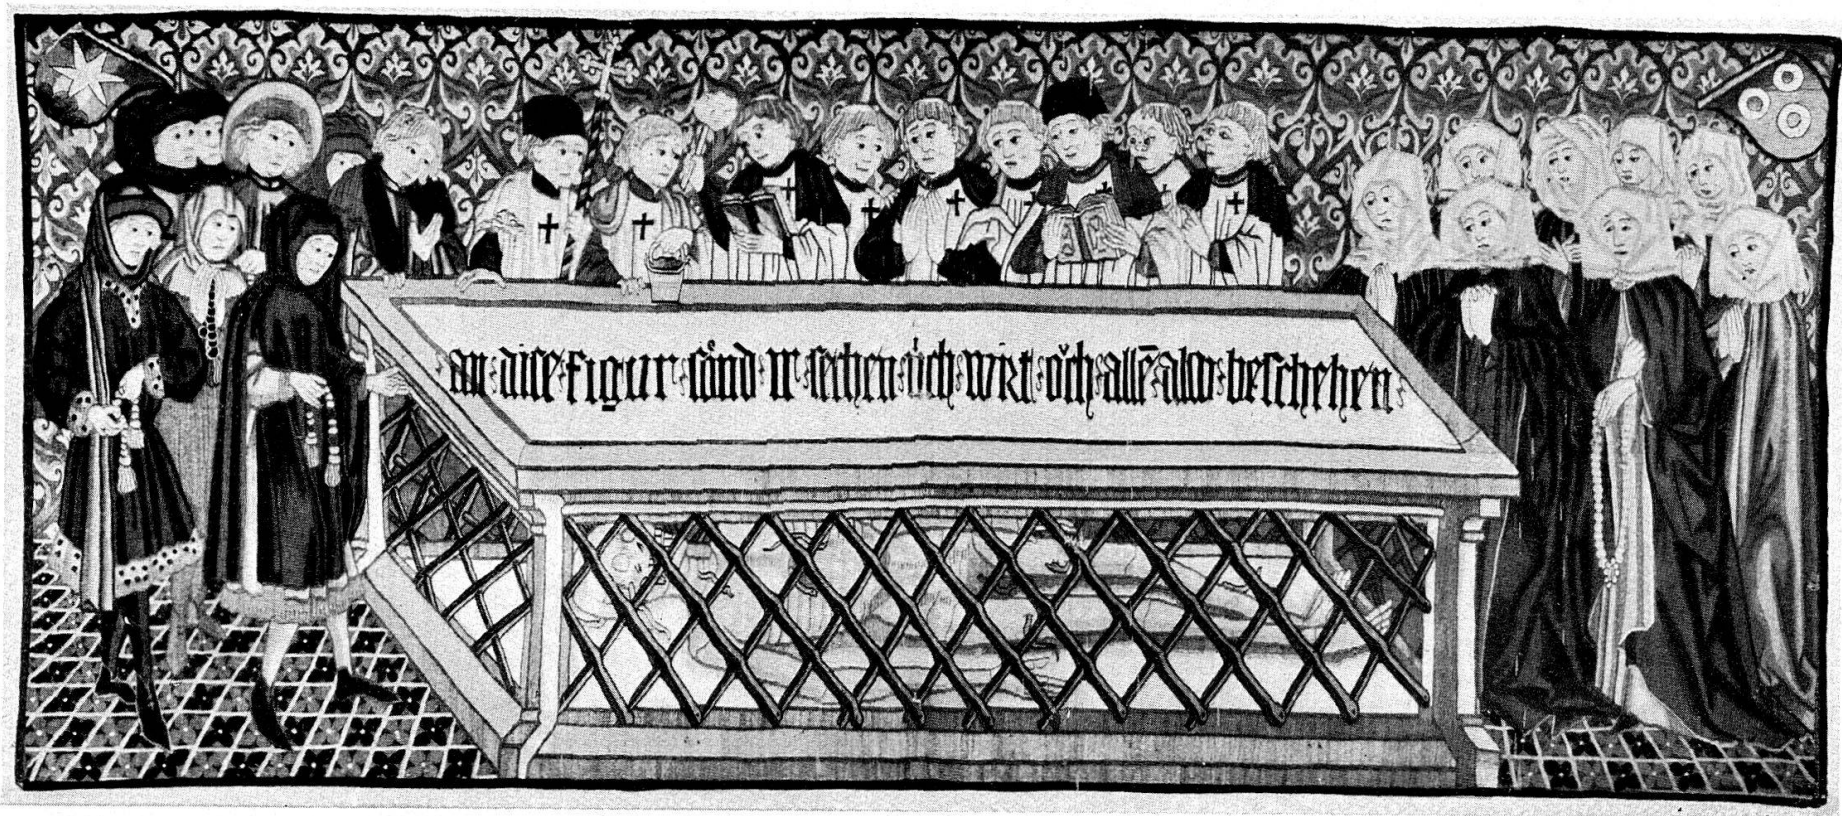 an · dise · figur · sŏnd · ir · sechen · üch · wirt · ŏch · allē · also · beschehen ·